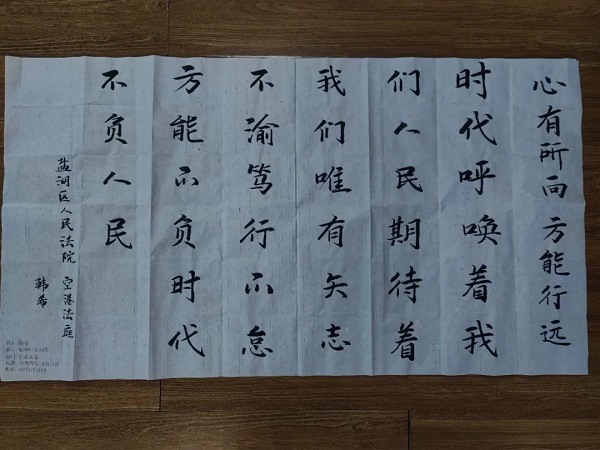 心有所向方能行远
时代呼唤着我
们人民期待着
我们唯有矢志
不渝笃行不怠
方能不负时代
不负人民
盐湖区人民法院 空港法庭
韩希